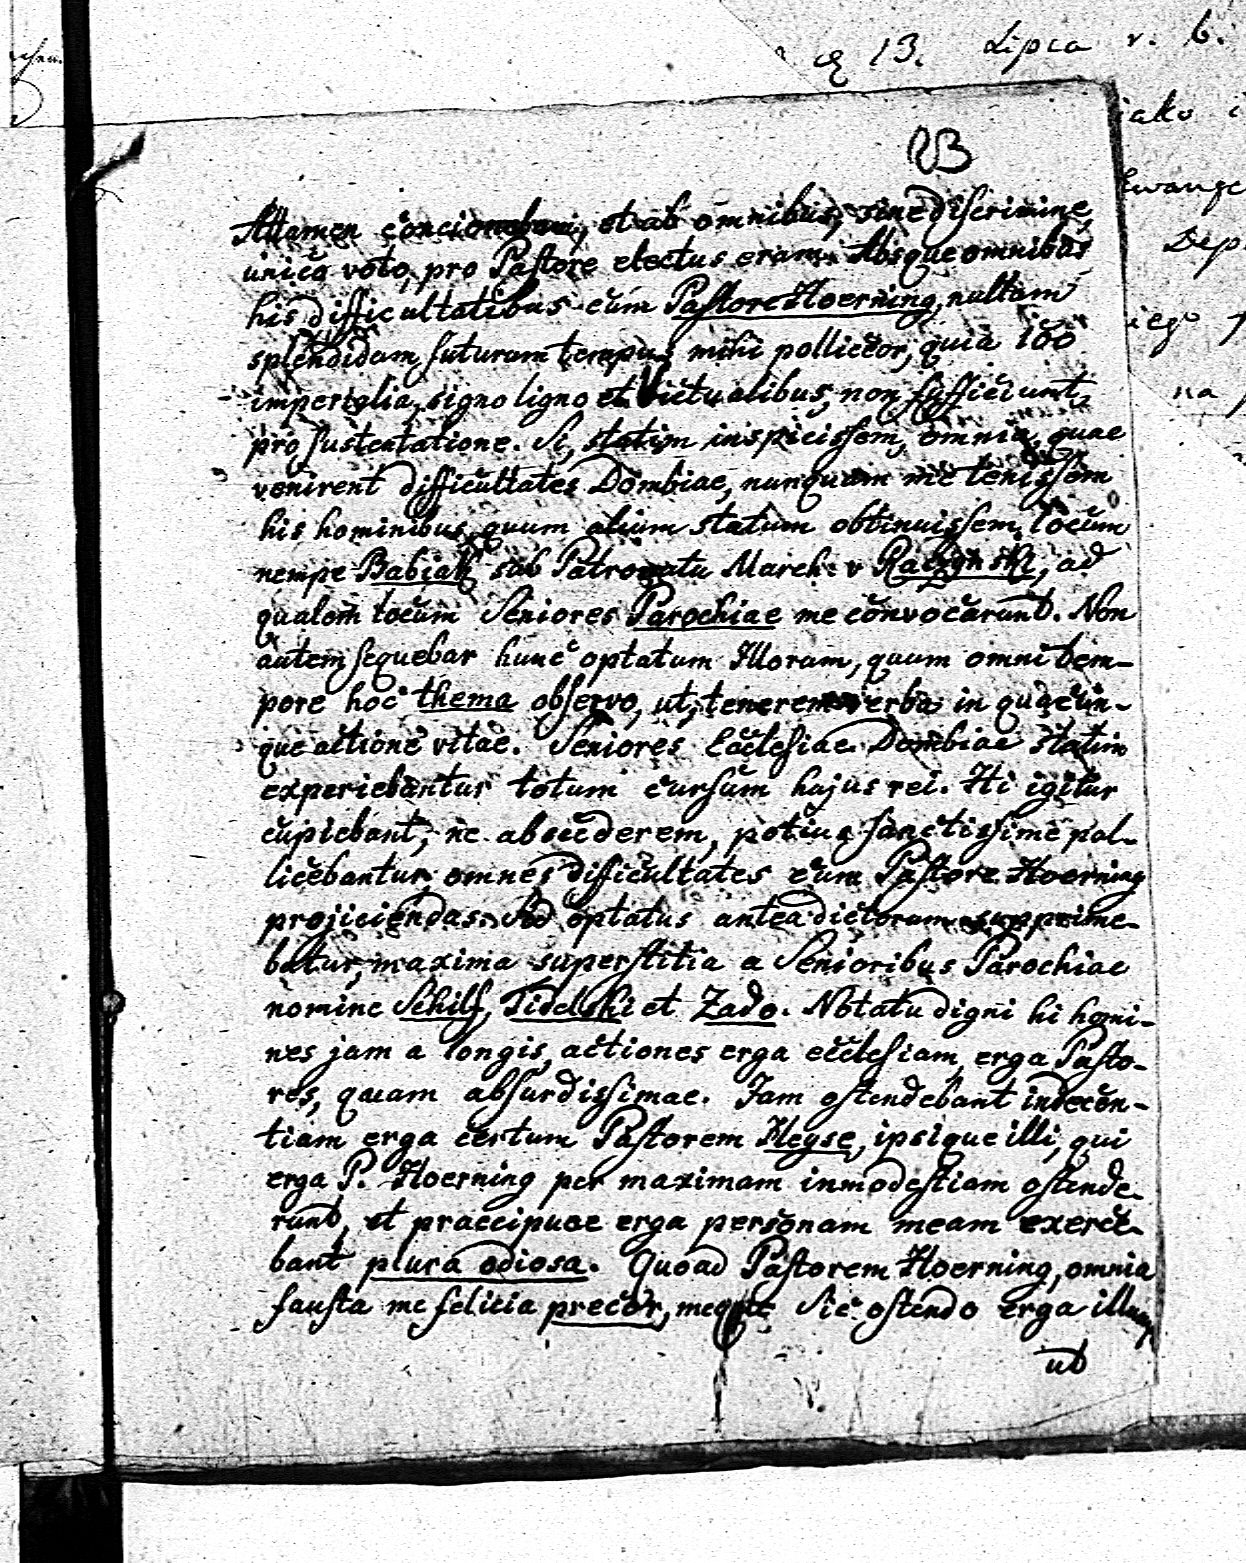 13. Lipca r. b.
iako i
23
Ewange
Attamen concionabam, et ab omnibus, sine discrimine,
Dep
unico voto, pro Pastore electus eram. Absque omnibus
his difficultatibus cum Pastore Hoerning, nullam
iego
splendidam futuram tempus mihi polliceor, quia 100
na
imperialia, signo ligno et Victualibus, non sufficiunt,
pro sustentatione. Si, statim inspicissem, omnia, quae
venirent difficultates Dombiae, nunquam me tenissem
his hominibus, quum alium statum obtinuissem, locum
nempe Babiak sub Patronatu March: v Raczynski, ad
qualem locum Seniores Parochiae me convocarunt. Non
autem sequebar hunc optatum Illorum, quum omni tem-
pore hoc thema observo, ut, tenerem verba in quacun-
que actione vitae. Seniores Ecclesiae Dombiae statim
experiebantur totum cursum hujus rei. Hi igitur
cupiebant, ne abscederem, potius sanctissime pol-
licebantur, omnes difficultates cum Pastore Hoerning
projiciendas. Sed optatus antea dictorum supprime-
batur, maxima superstitia a Senioribus Parochiae
nomine Schilf, Tidelski et Zado. Notatu digni hi homi-
nes jam a longis, actiones erga ecclesiam, erga Pasto-
res, quam absurdissimae. Jam ostendebant indecen-
tiam erga certum Pastorem Heyse, ipsique illi, qui
erga P. Hoerning per maximam inmodestiam ostende-
runt, et praecipuae erga personam meam exerce-
bant plura odiosa. Quoad Pastorem Hoerning, omnia
fausta me felicia precor, meque Sic ostendo erga illum
ut